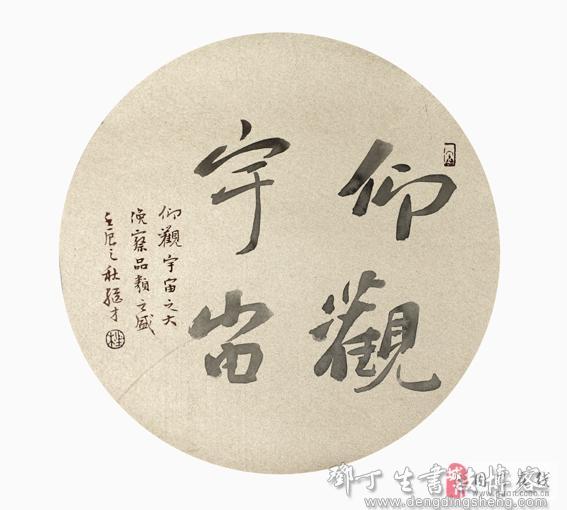 仰觀
宇宙
仰觀宇宙之大
俯察品類之盛
壬辰之秋繼才
鄧丁生書法博客
www.dengdingsheng.com